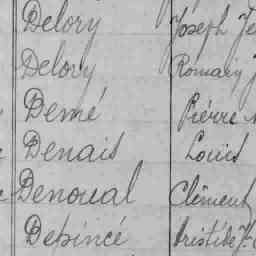 Delory Joseph
Delory Romain
Demé Pierre
Denais Louis
Denoual Clément
Depincé Aristide